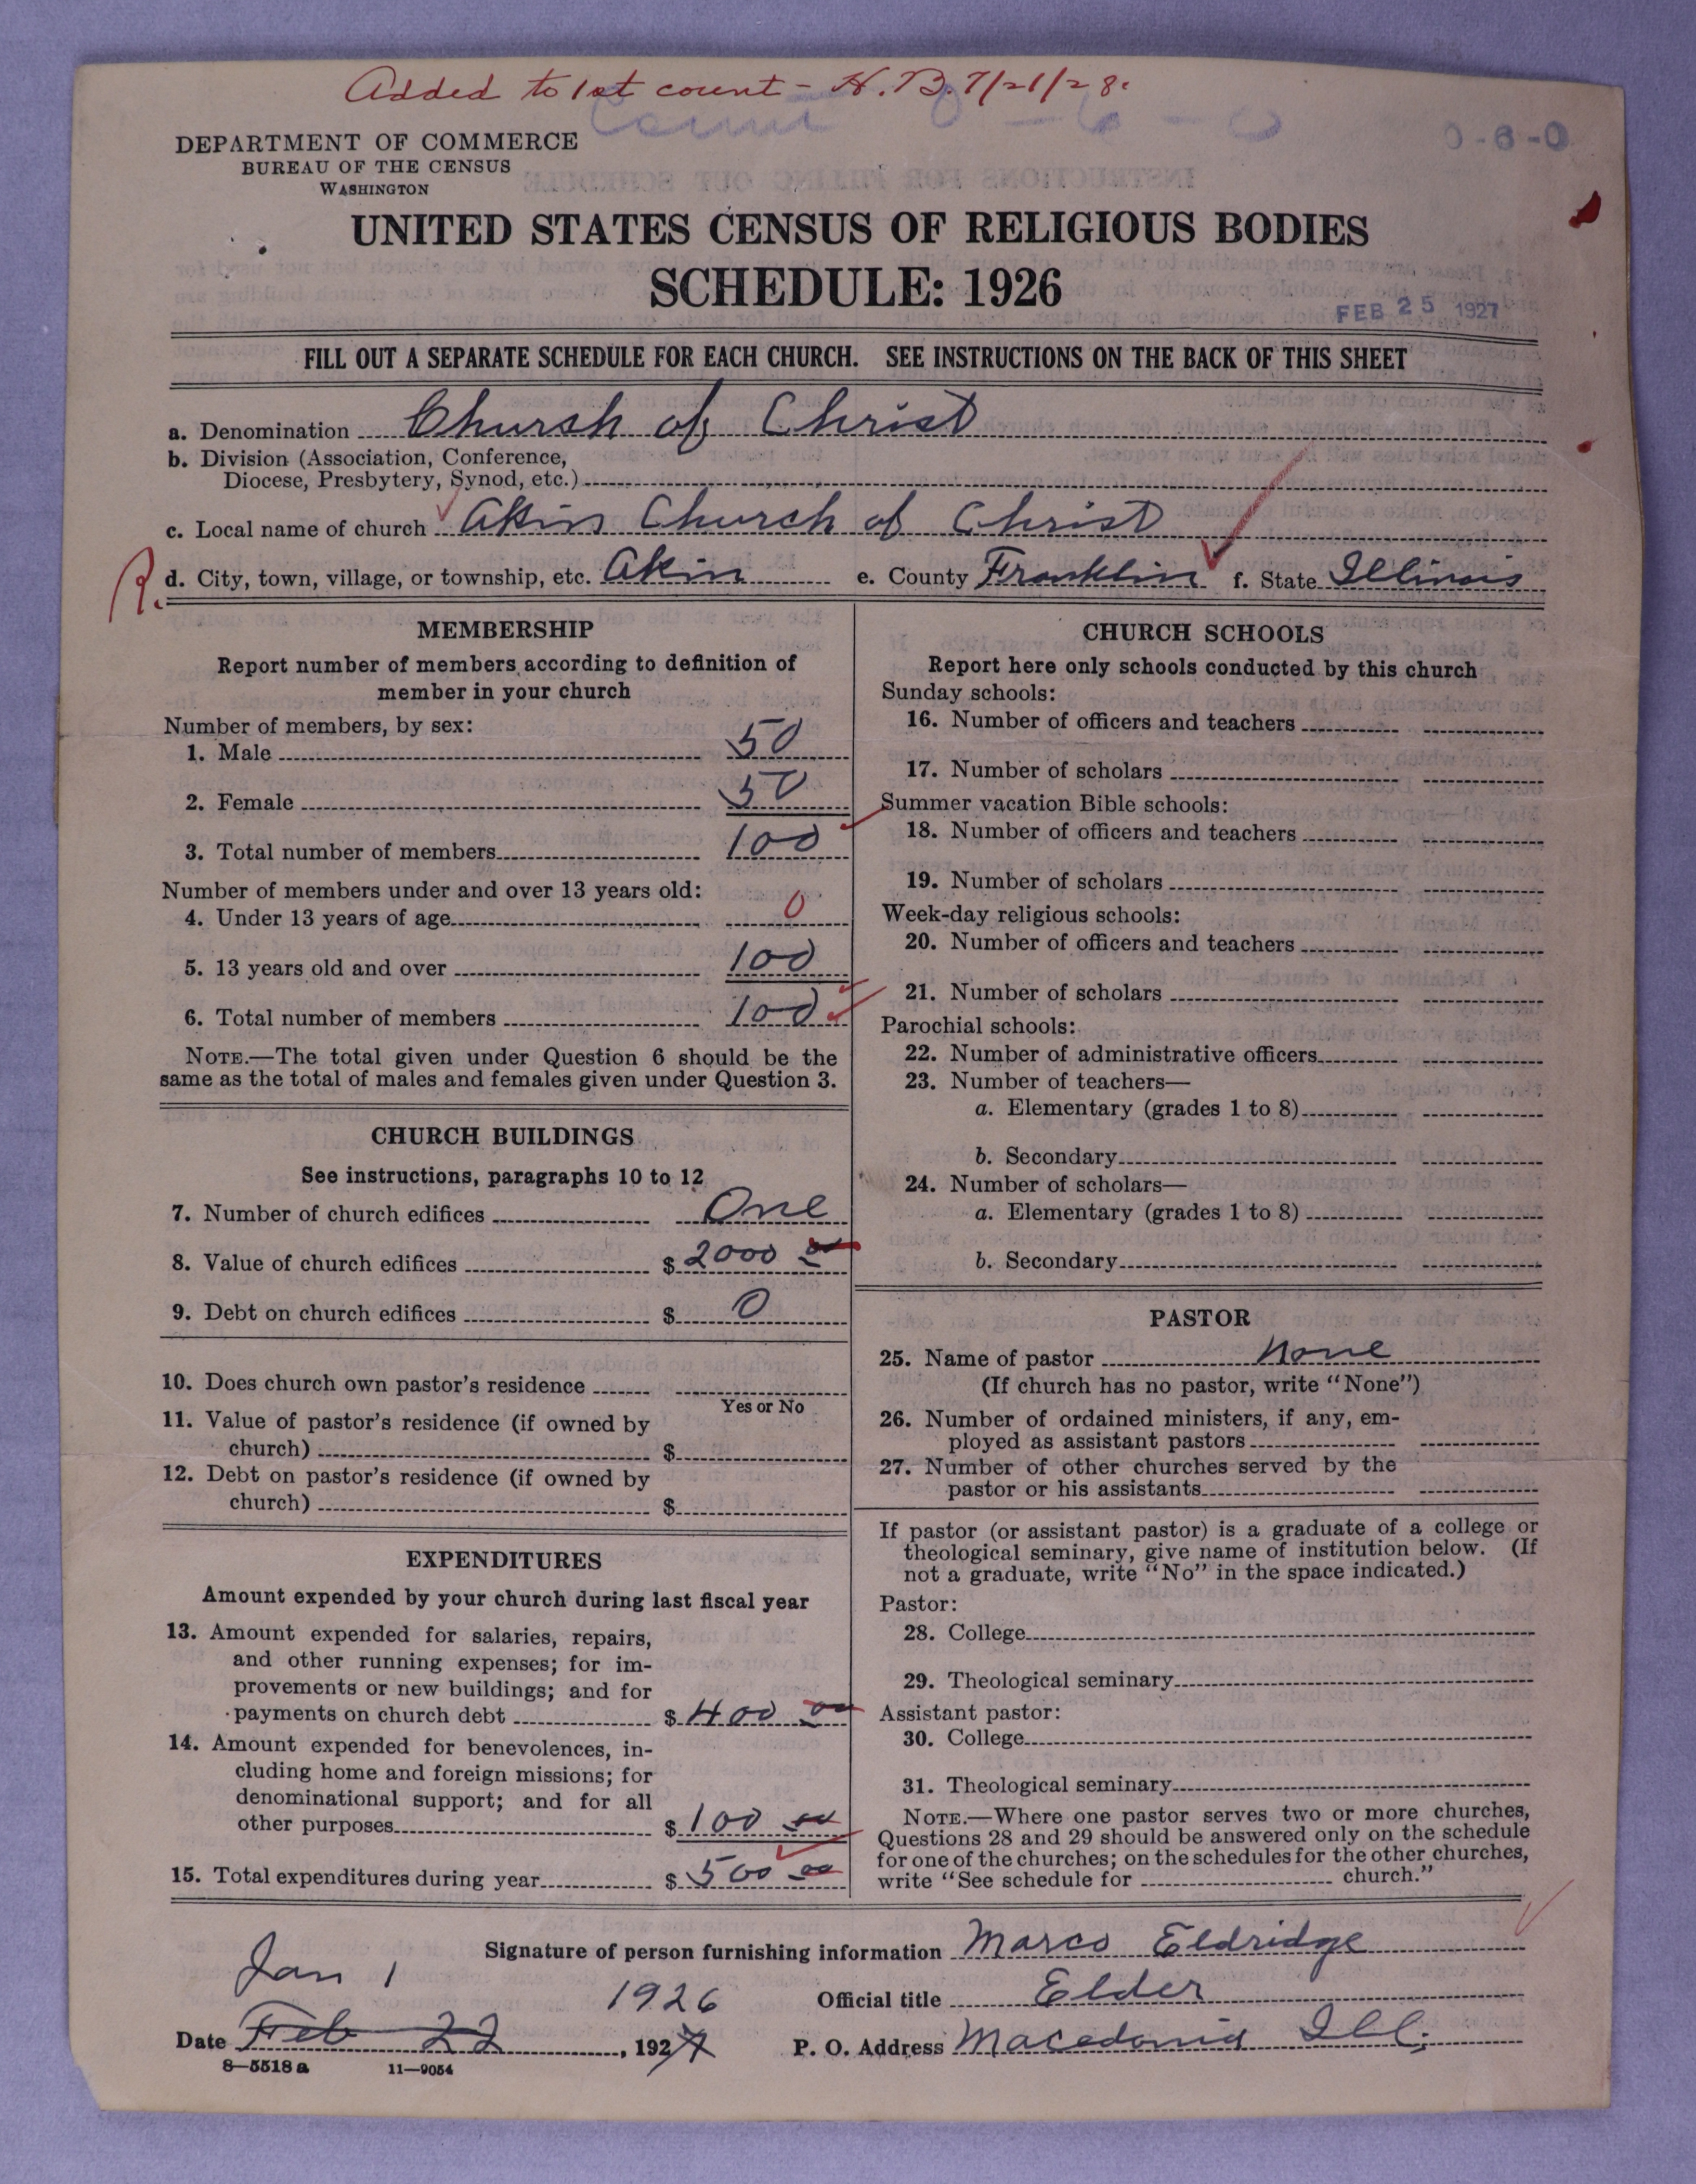 Added to 1st count - H.B. 7/21/28.
0-6-0
DEPARTMENT OF COMMERCE
BUREAU OF THE CENSUS
WASHINGTON
UNITED STATES CENSUS OF RELIGIOUS BODIES
SCHEDULE: 1926
FEB 25 1927
FILL OUT A SEPARATE SCHEDULE FOR EACH CHURCH. SEE INSTRUCTIONS ON THE BACK OF THIS SHEET
a. Denomination Church of Christ
b. Division (Association, Conference,
Diocese, Presbytery, Synod, etc.)
c. Local name of church Akin Church of Christ
R. d. City, town, village, or township, etc. Akin e. County Franklin f. State Illinois
MEMBERSHIP
Report number of members according to definition of
member in your church
Number of members, by sex:
1. Male 50
2. Female 50
3. Total number of members 100
Number of members under and over 13 years old:
4. Under 13 years of age 0
5. 13 years old and over 100
6. Total number of members 100
NOTE.—The total given under Question 6 should be the
same as the total of males and females given under Question 3.
CHURCH BUILDINGS
See instructions, paragraphs 10 to 12
7. Number of church edifices One
8. Value of church edifices $ 2000 00
9. Debt on church edifices $ 0
10. Does church own pastor's residence
Yes or No
11. Value of pastor's residence (if owned by
church) $
12. Debt on pastor's residence (if owned by
church) $
EXPENDITURES
Amount expended by your church during last fiscal year
13. Amount expended for salaries, repairs,
and other running expenses; for im-
provements or new buildings; and for
payments on church debt $ 400 00
14. Amount expended for benevolences, in-
cluding home and foreign missions; for
denominational support; and for all
other purposes $ 100 00
15. Total expenditures during year $ 500 00
CHURCH SCHOOLS
Report here only schools conducted by this church
Sunday schools:
16. Number of officers and teachers
17. Number of scholars
Summer vacation Bible schools:
18. Number of officers and teachers
19. Number of scholars
Week-day religious schools:
20. Number of officers and teachers
21. Number of scholars
Parochial schools:
22. Number of administrative officers
23. Number of teachers—
a. Elementary (grades 1 to 8)
b. Secondary
24. Number of scholars—
a. Elementary (grades 1 to 8)
b. Secondary
PASTOR
25. Name of pastor None
(If church has no pastor, write "None")
26. Number of ordained ministers, if any, em-
ployed as assistant pastors
27. Number of other churches served by the
pastor or his assistants
If pastor (or assistant pastor) is a graduate of a college or
theological seminary, give name of institution below. (If
not a graduate, write "No" in the space indicated.)
Pastor:
28. College
29. Theological seminary
Assistant pastor:
30. College
31. Theological seminary
NOTE.—Where one pastor serves two or more churches,
Questions 28 and 29 should be answered only on the schedule
for one of the churches; on the schedules for the other churches,
write "See schedule for church."
Signature of person furnishing information Marco Eldridge
Jan 1 1926
Official title Elder
Date Feb 22, 1927
P. O. Address Macedonia Ill.
8—5518 a 11—9054